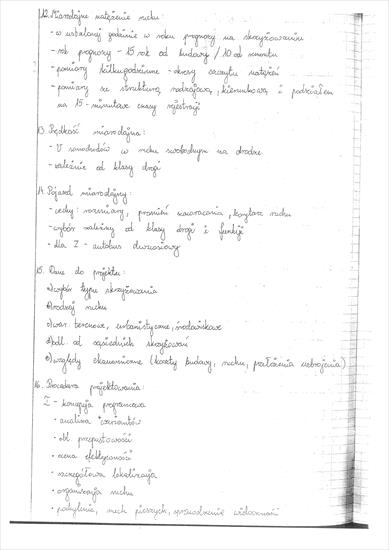 12. Miarodajne natężenie ruchu:
- w ustalonej godzinie w roku prognozy na skrzyżowaniu
- rok prognozy - 15 rok od budowy / 10 od remontu
- pomiary kilkugodzinne - okresy szczytu natężeń
- pomiary ze strukturą rodzajową, kierunkową i podziałem
na 15-minutowe czasy rejestracji
13. Prędkość miarodajna:
- V samochodów w ruchu swobodnym na drodze
- zależnie od klasy drogi
14. Pojazd miarodajny:
- cechy: rozmiary, promień zawracania, korytarz ruchu
- wybór zależny od klasy drogi i funkcji
- dla Z - autobus dwuosiowy
15. Dane do projektu:
a) wybór typu skrzyżowania
b) rodzaj ruchu
c) war. terenowe, urbanistyczne, środowiskowe
d) odl. od sąsiednich skrzyżowań
e) względy ekonomiczne (koszty budowy, ruchu, przełożenia uzbrojenia)
16. Procedura projektowania:
I - koncepcja programowa
· analiza wariantów
· obl. przepustowości
· ocena efektywności
· szczegółowa lokalizacja
· organizacja ruchu
· pochylenia, ruch pieszych, sprawdzenie widoczności